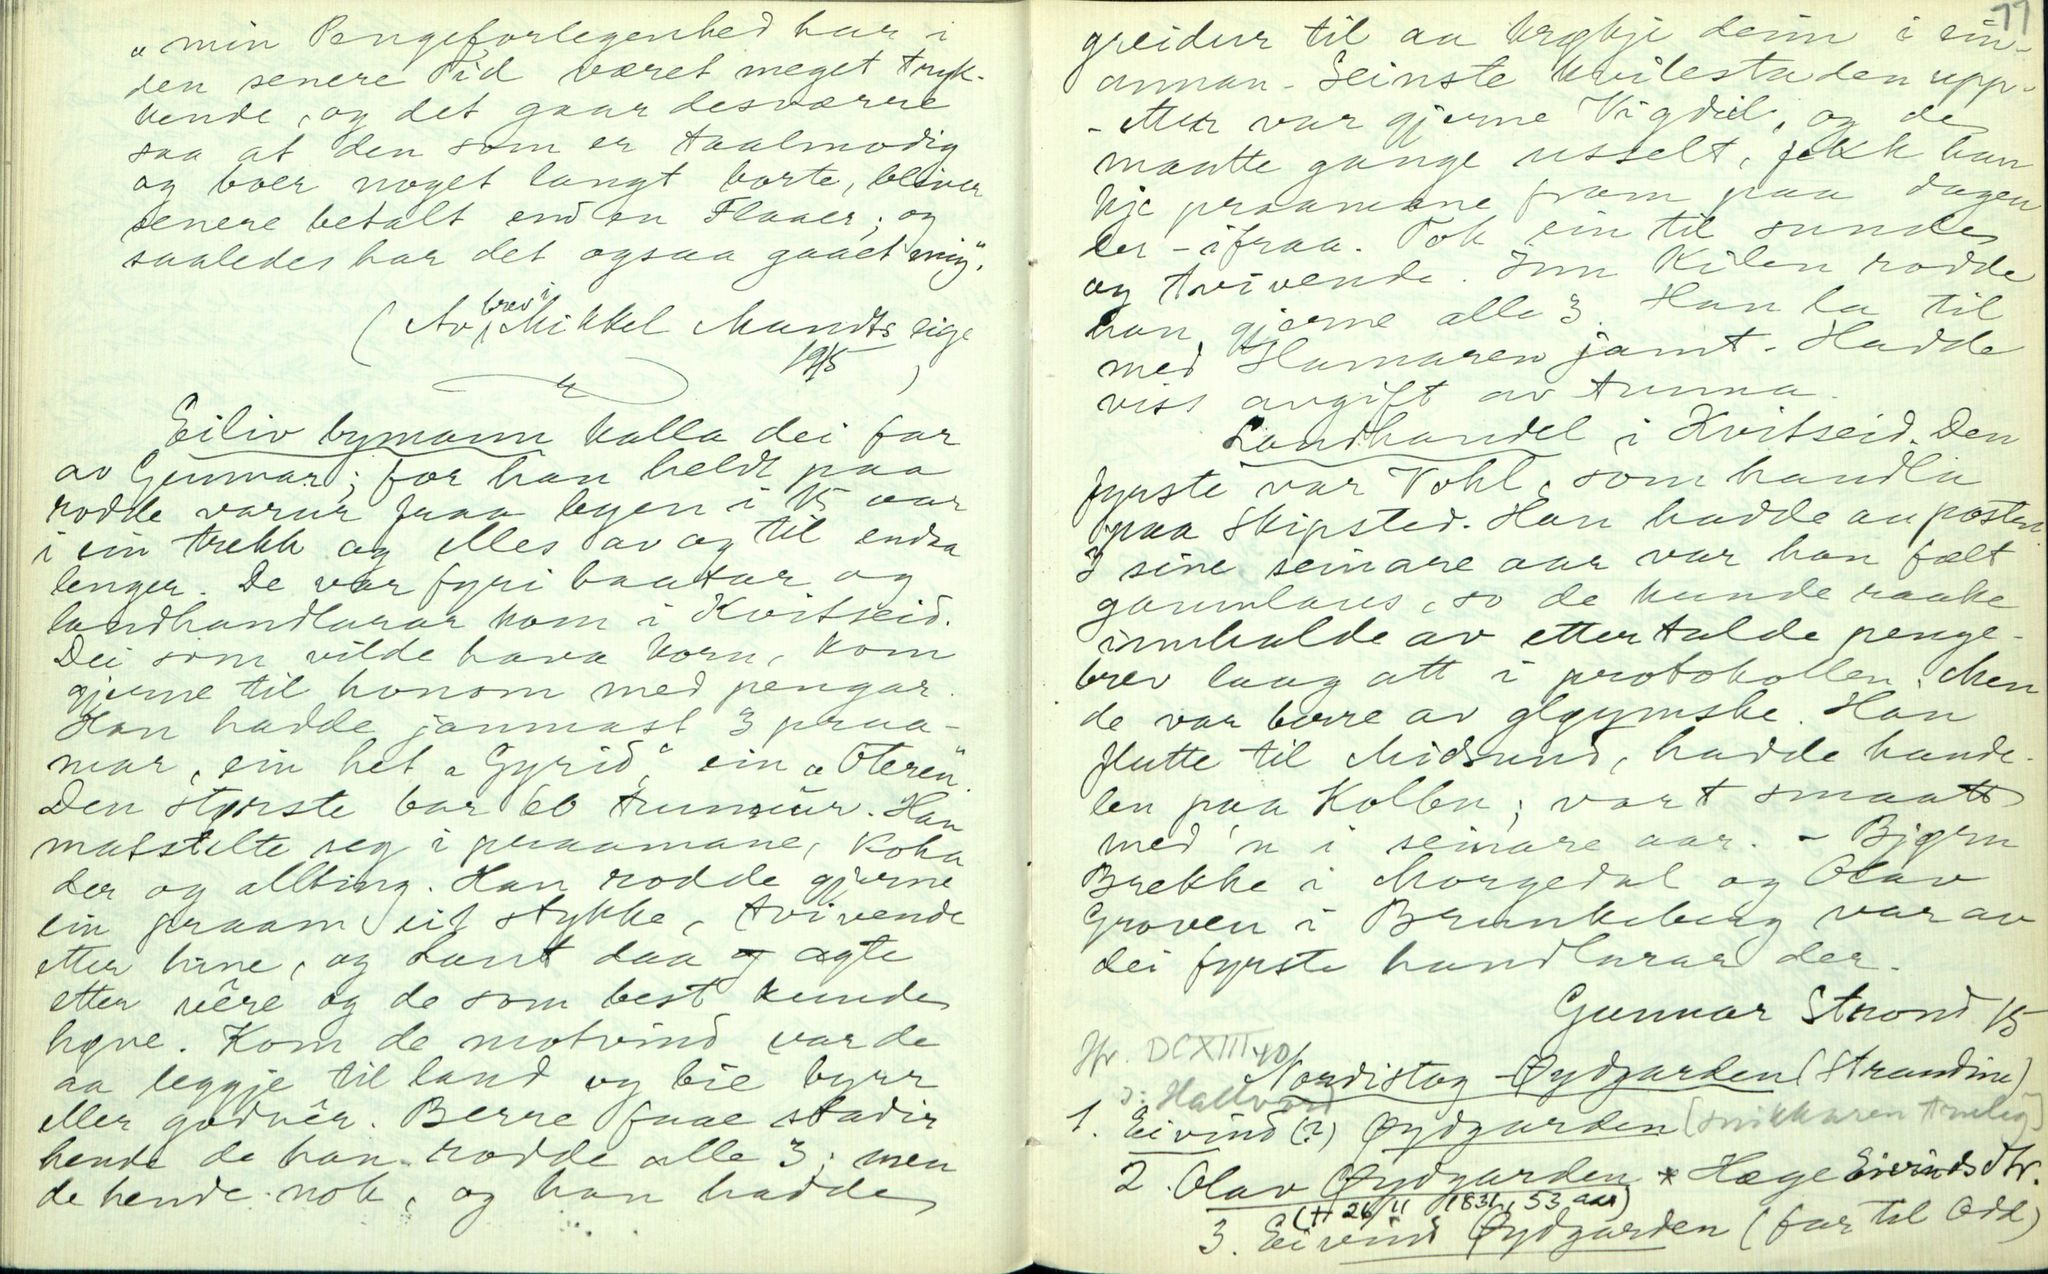 „min Pengeforlegenhed har i
den senere Tid været meget tryk-
kende, og det gaar desværre
saa at den som er taalmodig
og boer noget langt borte, bliver
senere betalt end en Flaaer; og
saaledes har det ogsaa gaaet mig".
(Av brev i Mikkel Mandts eige
1915)
Eiliv bymann kalla dei far
av Gunnar; for han heldt paa
rodde varur fraa byen i 15 aar
i ein trekk og elles av og til endaa
lenger. De var fyri baatar og
landhandlarar kom i Kvitseid.
Dei som vilde hava korn, kom
gjerne til honom med pengar.
Han hadde janmast 3 praa-
mar, ein het „Gyrid", ein „Oteren".
Den største bar 60 tunnur. Han
matstelte seg i praamane, koka
der og allting. Han rodde gjerne
ein praam eit stykke, tvivende
etter hine, og lant daa agte
etter vêre og de som best kunde
høve. Kom de motvind var de
aa leggje til land og bie byrr
eller godvêr. Berre faae stadir
hende de han rodde alle 3; men
de hende nok, og han hadde
77
greidur til aa krøkje deim i ein-
annan. Seinste kvilestaden upp-
-etter var gjerne Vigdeil, og de
maatte gange usselt, fekk han
kje praamane fram paa dagen
der-ifraa. Tok ein til sunde
og tvivende. Inn Kilen rodde
han gjerne alle 3. Han la til
med Hamaren jamt. Hadde
viss avgift av tunna.
Landhandel i Kvitseid. Den
fyrste var Vohl, som handla
paa Skipsted. Han hadde au posten.
I sine seinare aar var han fælt
gaumlaus, so de kunde raake
innhalde av ettertalde penge-
brev laag att i protokollen. Men
de var berre av gløymske. Han
flutte til Midsund, hadde hande-
len paa Kolben; vart smaatt
med 'n i seinare aar. – Bjørn
Brekke i Morgedal og Olav
Groven i Brunkeberg var av
dei fyrste handlarar der.
Gunnar Strond 15
Jfr. DCXIII 40
Nordistog Øydgarden (Strandine)
ɔ: Hallvor
1. Eivind (?) Øydgarden [snikkaren truleg]
2. Olav Øydgarden * Hæge Eivindsdtr.
(† 26/11 1831, 53 aar)
3. Eivind Øydgarden (far til Odd)